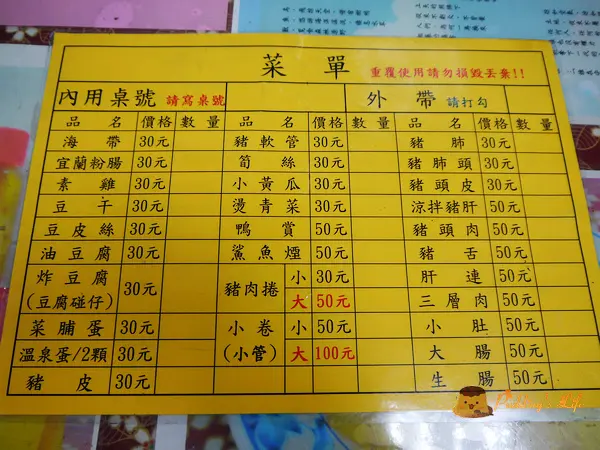 菜 單
重覆使用請勿損毀丟棄!!
內用桌號 請寫桌號 外 帶 請打勾
品 名 價格 數 量 品 名 價格 數 量 品 名 價格 數 量
海 帶 30元 豬 軟 管 30元 豬 肺 30元
宜蘭粉腸 30元 筍 絲 30元 豬 肺 頭 30元
素 雞 30元 小 黃 瓜 30元 豬 頭 皮 30元
豆 干 30元 燙 青 菜 30元 涼拌豬肝 50元
豆 皮 絲 30元 鴨 賞 50元 豬 頭 肉 50元
油 豆 腐 30元 鯊 魚 煙 50元 豬 舌 50元
炸 豆 腐 (豆腐碰仔) 30元 豬肉捲 小 30元 肝 連 50元
大 50元 三 層 肉 50元
菜 脯 蛋 30元 小 卷 (小管) 小 50元 小 肚 50元
溫泉蛋/2顆 30元 大 100元 大 腸 50元
豬 皮 30元 生 腸 50元
Pudding's Life